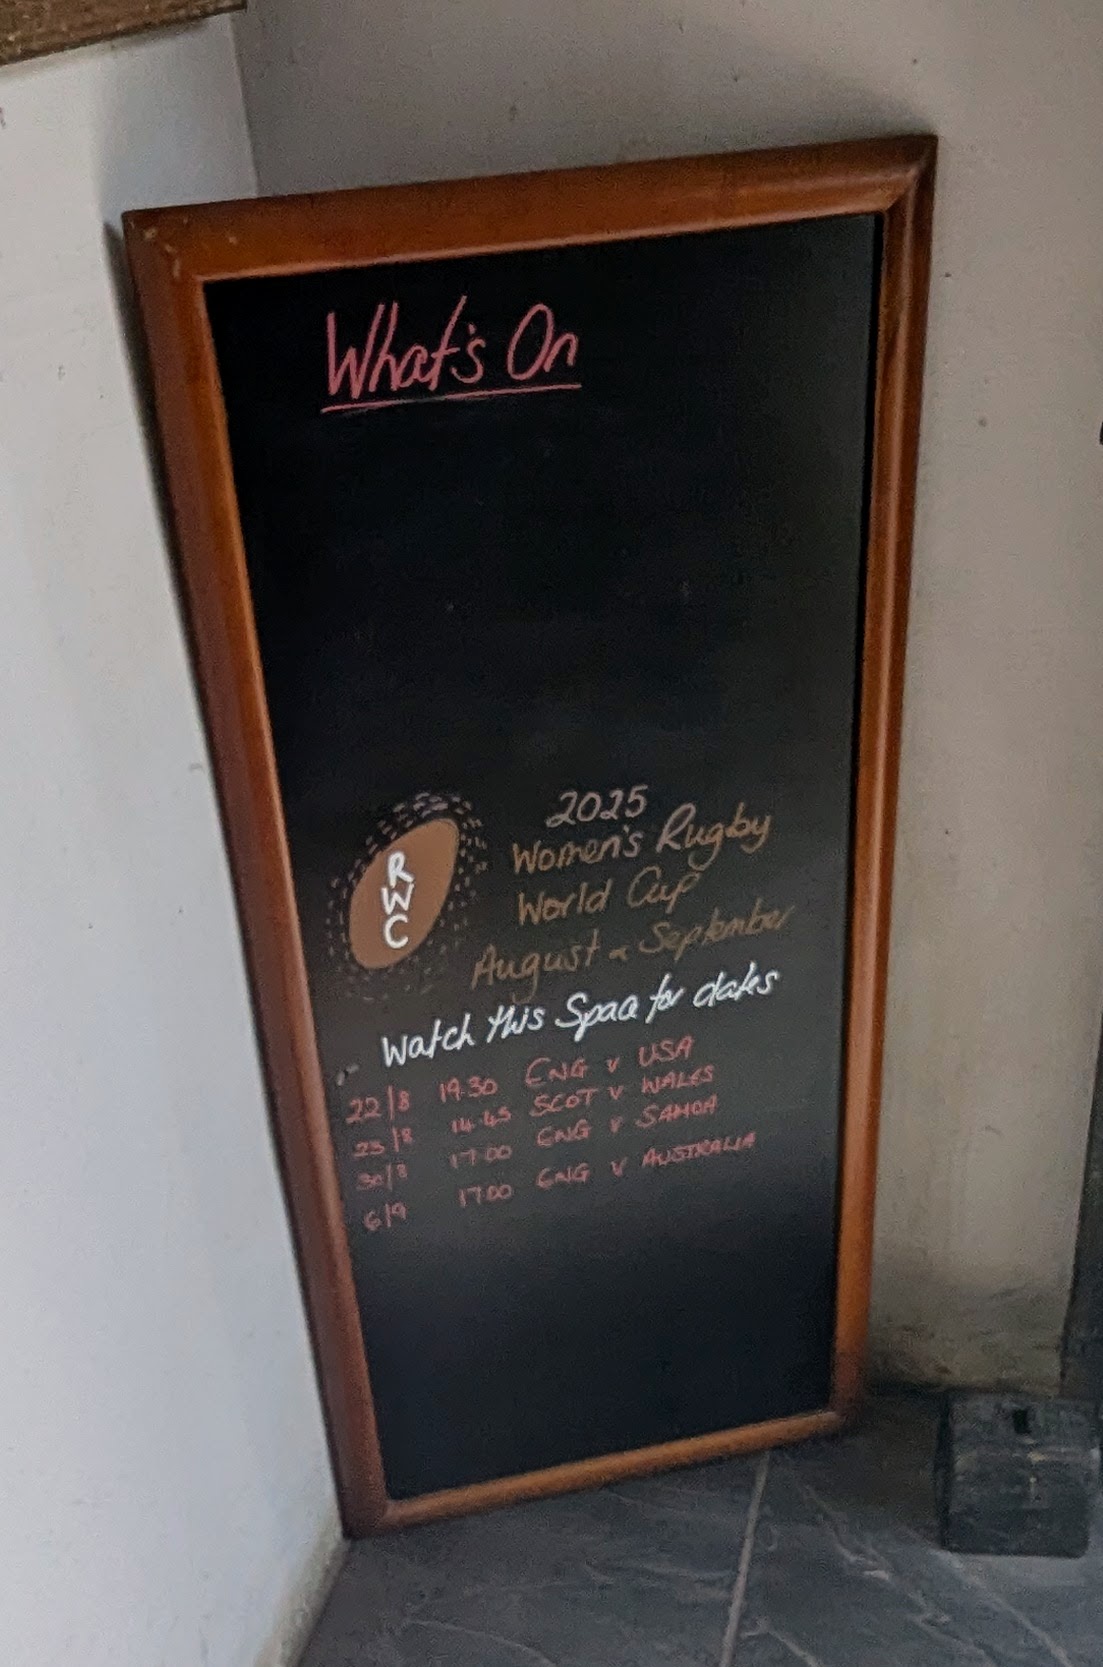 What's On
R
W
C
2025
Women's Rugby
World Cup
August & September
Watch this Space for dates
22/8 19.30 ENG v USA
23/8 14.45 SCOT v WALES
30/8 17.00 ENG v SAMOA
6/9 17.00 ENG v AUSTRALIA